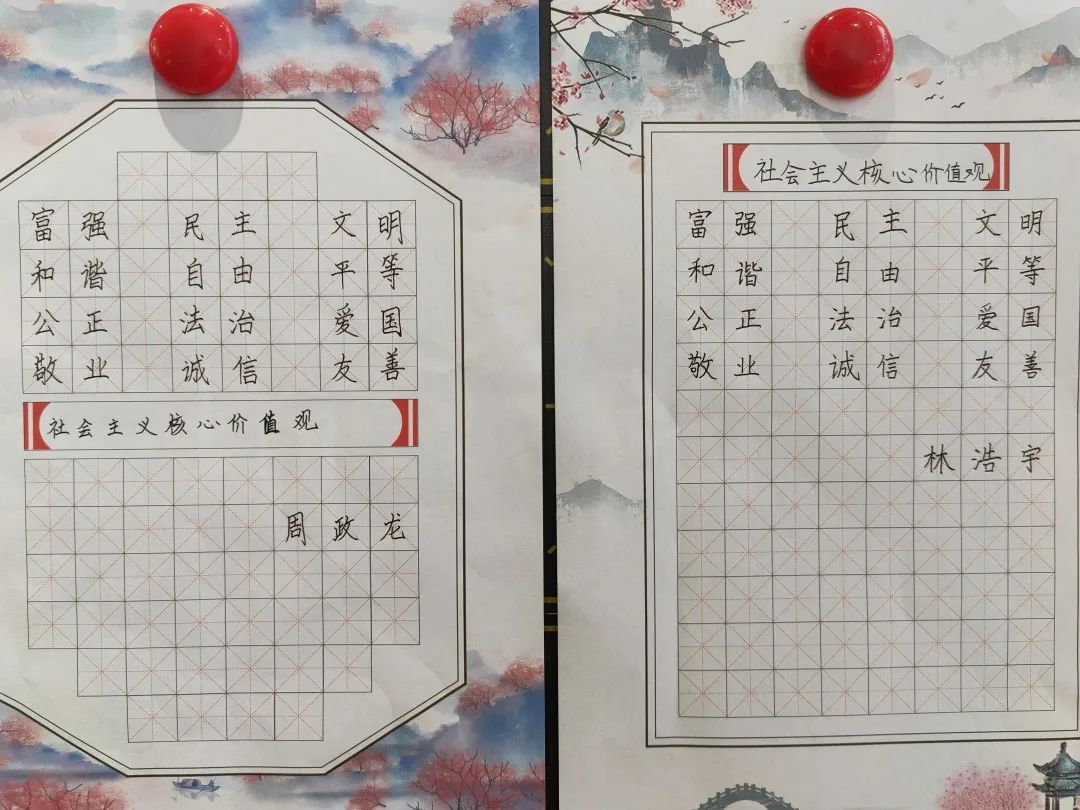 富强 民主 文明
和谐 自由 平等
公正 法治 爱国
敬业 诚信 友善
社会主义核心价值观
周政龙
社会主义核心价值观
富强 民主 文明
和谐 自由 平等
公正 法治 爱国
敬业 诚信 友善
林浩宇